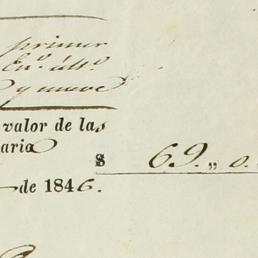 primer
En.º últ.º
y nueve
valor de las
aria
$ 69.,, 0.
de 1846.